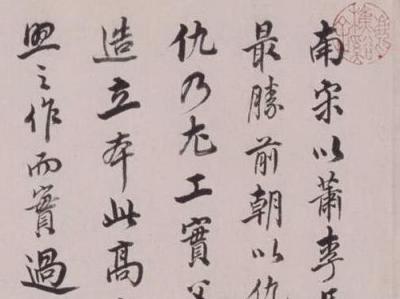 南宋以蕭李
最勝前朝以仇
仇乃尤工實
造立本此高
之作而實過